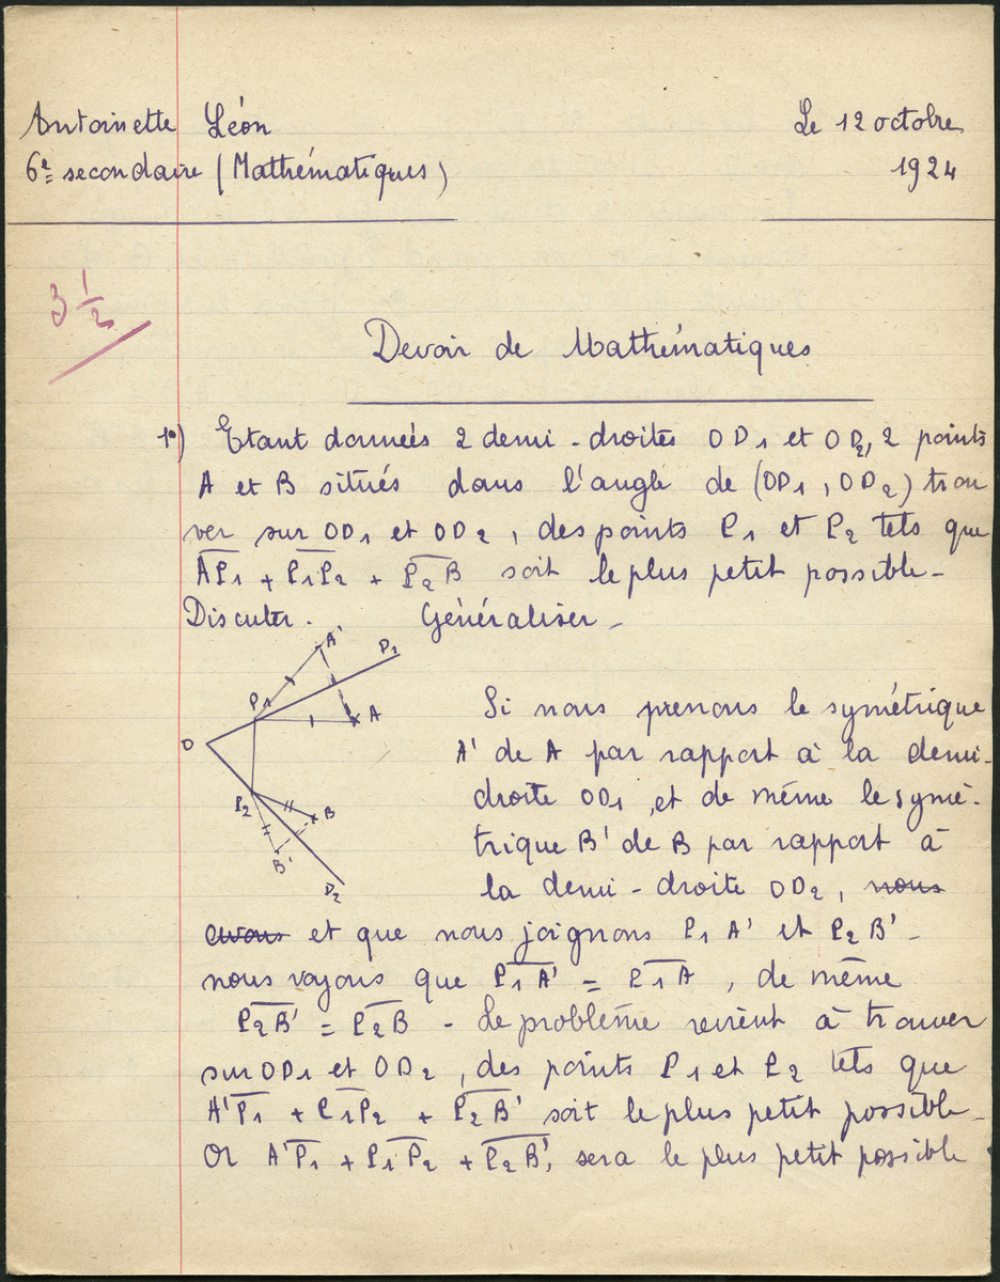 Antoinette Léon
Le 12 octobre
6e secondaire (Mathématiques)
1924
3 1/2
Devoir de Mathématiques
1o) Etant donneés 2 demi-droites OD1 et OD2, 2 points
A et B situés dans l'angle de (OD1, OD2) trou
ver sur OD1 et OD2, des points P1 et P2 tels que
AP1 + P1P2 + P2B soit le plus petit possible-
Discuter. Généraliser-
A'
D1
P1
A
O
P2
B
B'
D2
Si nous prenons le symétrique
A' de A par rapport à la demi-
droite OD1, et de même le symé-
trique B' de B par rapport à
la demi-droite OD2, nous
avons et que nous joignons P1 A' et P2 B'-
nous voyons que P1A' = P1A, de même
P2B' = P2B - Le problème revient à trouver
sur OD1 et OD2, des points P1 et P2 tels que
A'P1 + P1P2 + P2B' soit le plus petit possible-
Or A'P1 + P1P2 + P2B', sera le plus petit possible